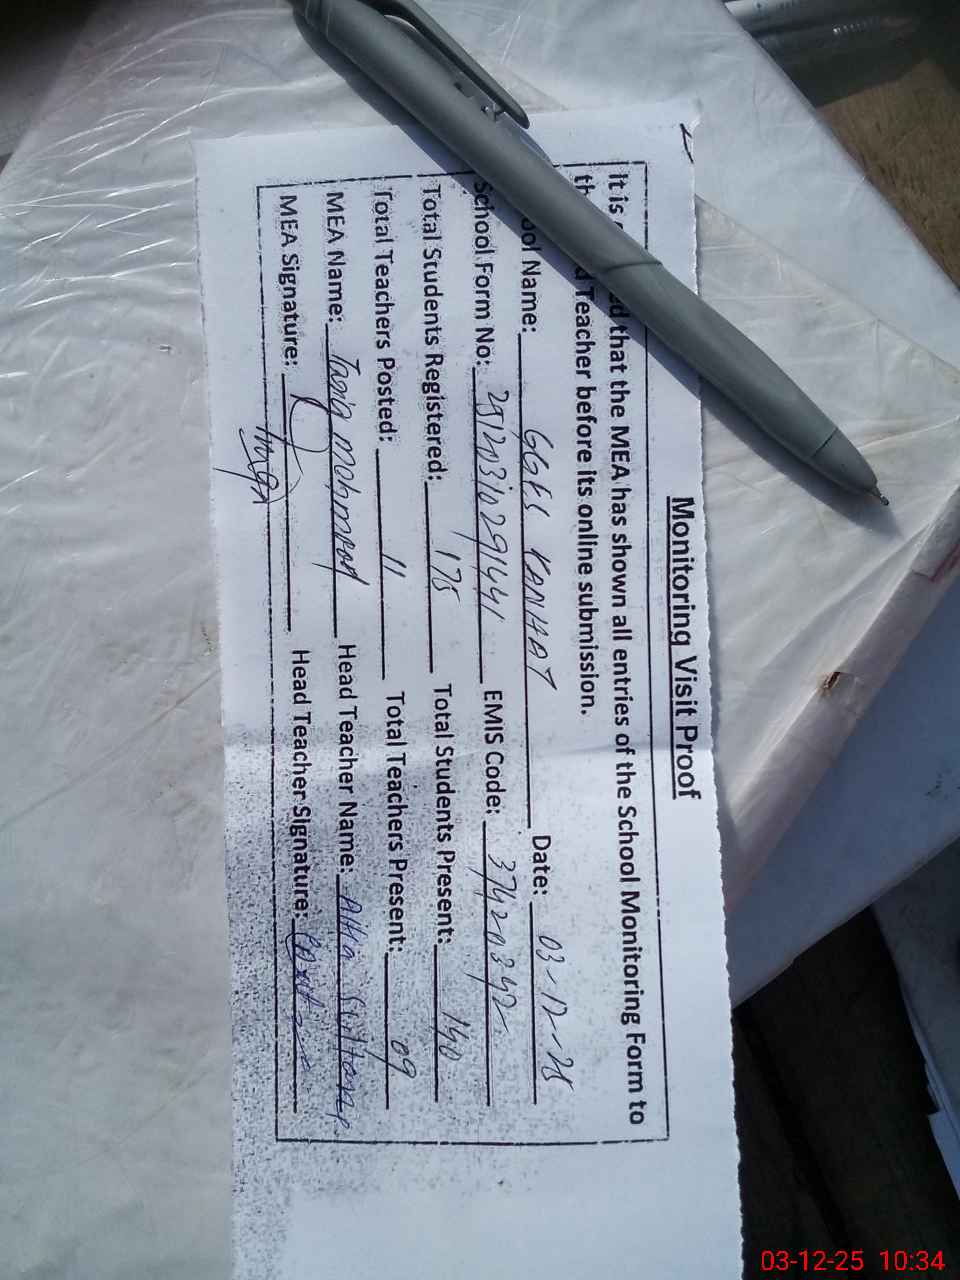 Monitoring Visit Proof
It is that the MEA has shown all entries of the School Monitoring Form to
Teacher before its online submission.
Name: GGES KANHAT Date: 03-12-25
School Form No: EMIS Code: 37420342
Total Students Registered: 175 Total Students Present: 140
Total Teachers Posted: 11 Total Teachers Present: 09
MEA Name: Tariq Mehmood Head Teacher Name: Sultana
MEA Signature: Head Teacher Signature:
03-12-25 10:34